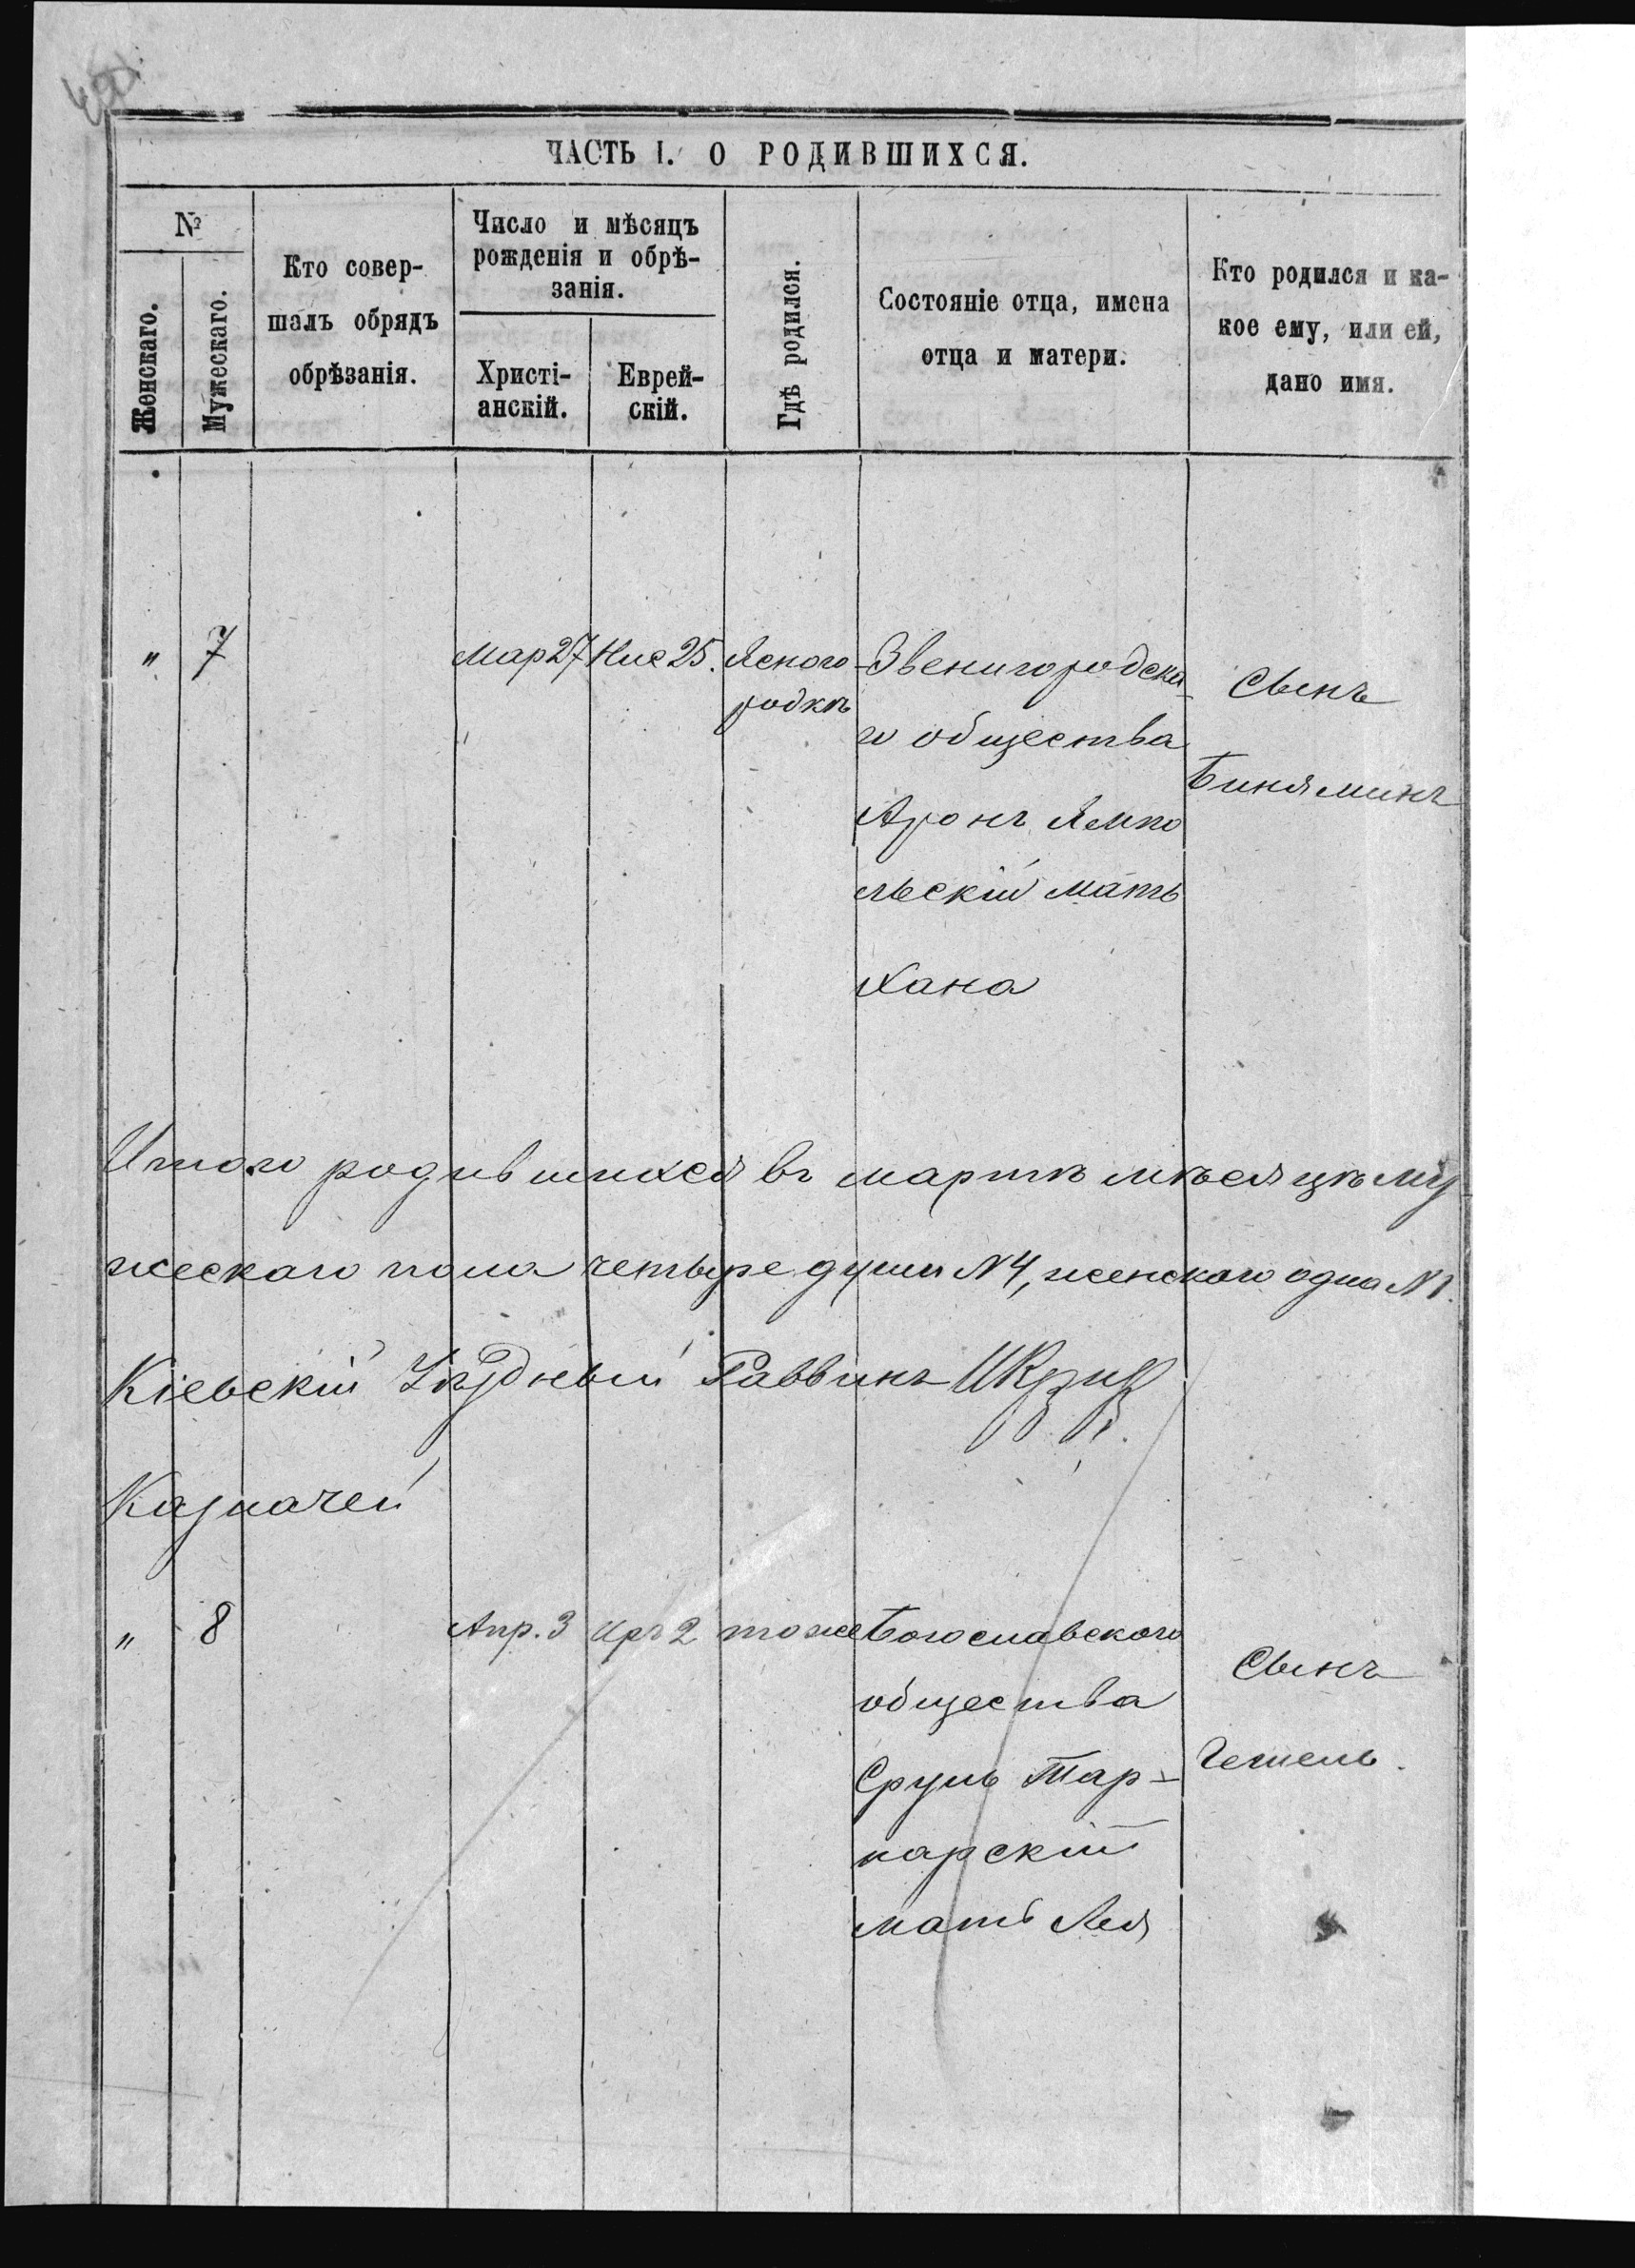 ЧАСТЬ I. О РОДИВШИХСЯ.
№
Женскаго.
Мужескаго.
Кто совер-
шалъ обрядъ
обрѣзанія.
Число и мѣсяцъ
рожденія и обрѣ-
занія.
Христі-
анскій.
Еврей-
скій.
Гдѣ родился.
Состояніе отца, имена
отца и матери.
Кто родился и ка-
кое ему, или ей,
дано имя.
" 7 Мар 27 Нис 25. Ясного-
родкѣ
Звенигородска-
го общества
Аронъ Ямпо
льскій мать
Хана
Сынъ
Биняминъ
Итого родившихся въ мартѣ мѣсяцѣ му
жескаго пола четыре души № 4, женскаго одна № 1.
Кіевскій Уѣздный Раввинъ
Казначей
" 8 Апр. 3 Иръ 2 тоже
Богославского
общества
Сруль Тар-
нарскій
мать Лея
Сынъ
Гешель.